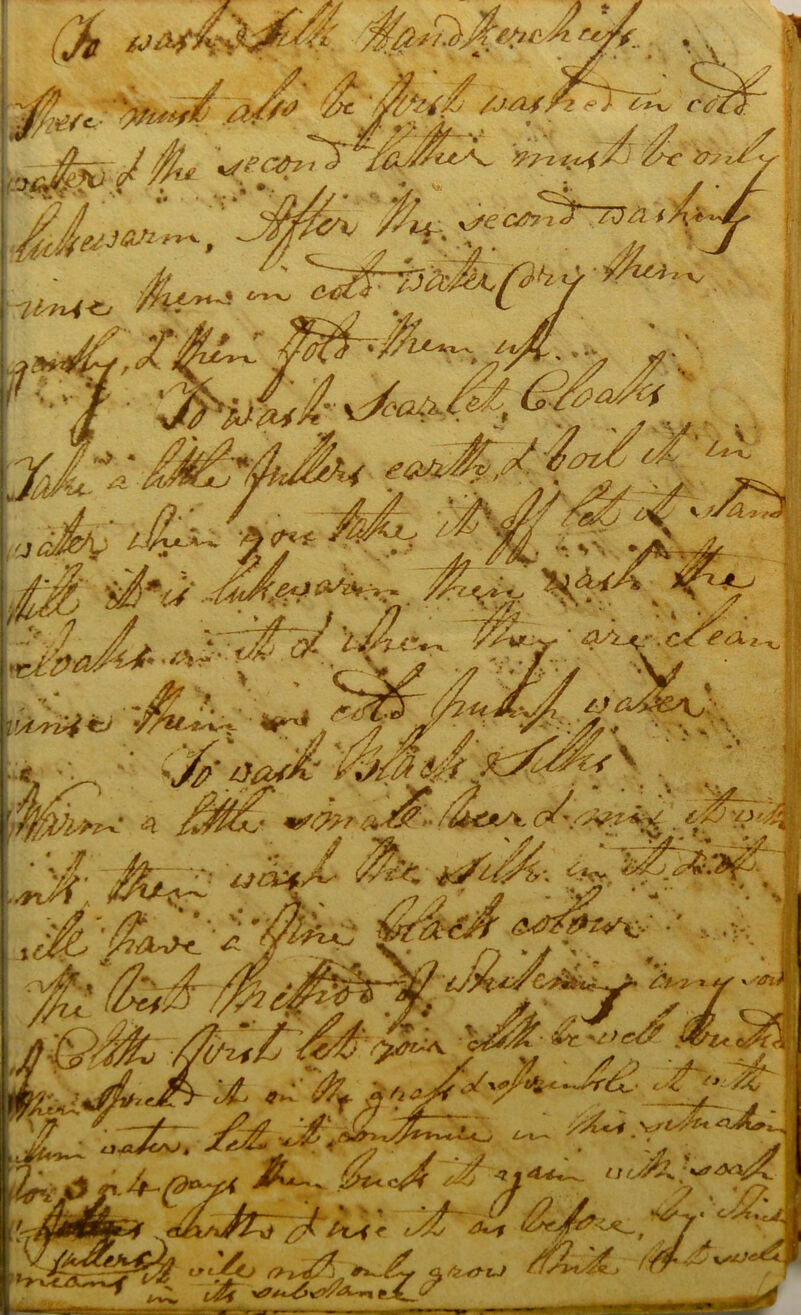 To wash Silk Handkerchiefs
These must also be first washed in cold
water & the second lather must be only
lukewarm, After the second washing
rinse them in cold water (dry them
gently, & then fold them up.
To wash Scarlet, Cloaks
Take a little fullers earth, & boil it in
water when you take it off let it stand
till it is lukewarm then wash the
cloaks in it & when they are clean
rinse them in cold pump water
To wash Black Silks
Warm a little small beer & mix it with
ink then wash the silk in it & it
will have a fine black colour
The best Method of Whitening any sort
of Cloth first let your cloth be well buckd
then spread it on the grass & sprinkle it with
alum water. Let it continue in this situation
for 3 or 4 Days then buck it again with soap
& fullers earth & use it as before, by which
means it will not only grow White but swell
in its substance